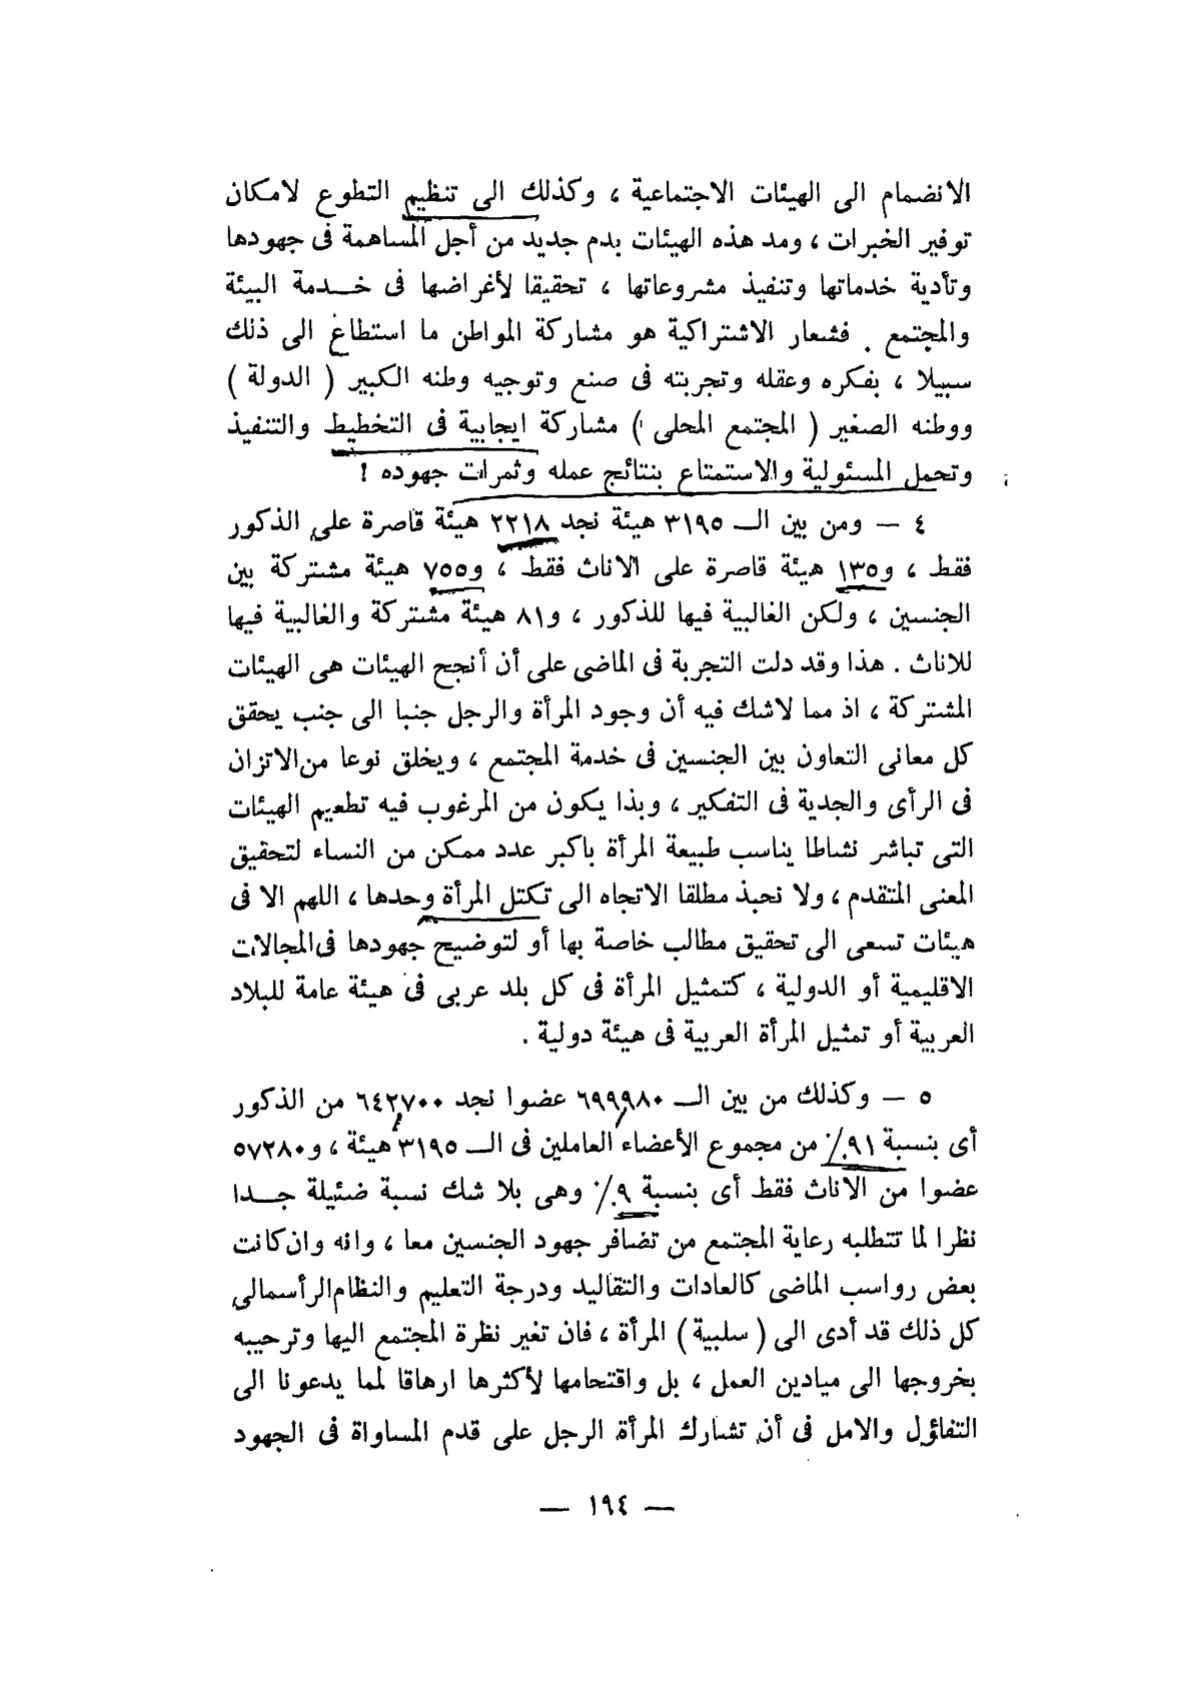 الانضمام الى الهيئات الاجتماعية ، وكذلك الى تنظيم التطوع لامكان
توفير الخبرات ، ومد هذه الهيئات بدم جديد من أجل المساهمة فى جهودها
وتأدية خدماتها وتنفيذ مشروعاتها ، تحقيقا لأغراضها فى خدمة البيئة
والمجتمع . فشعار الاشتراكية هو مشاركة المواطن ما استطاع الى ذلك
سبيلا ، بفكره وعقله وتجربته فى صنع وتوجيه وطنه الكبير ( الدولة )
ووطنه الصغير ( المجتمع المحلى ) مشاركة ايجابية فى التخطيط والتنفيذ
وتحمل المسئولية والاستمتاع بنتائج عمله وثمرات جهوده !
٤ — ومن بين الـ ٣١٩٥ هيئة نجد ٢٢١٨ هيئة قاصرة على الذكور
فقط ، و١٣٥ هيئة قاصرة على الاناث فقط ، و٧٥٥ هيئة مشتركة بين
الجنسين ، ولكن الغالبية فيها للذكور ، و٨١ هيئة مشتركة والغالبية فيها
للاناث . هذا وقد دلت التجربة فى الماضى على أن أنجح الهيئات هى الهيئات
المشتركة ، اذ مما لاشك فيه أن وجود المرأة والرجل جنبا الى جنب يحقق
كل معانى التعاون بين الجنسين فى خدمة المجتمع ، ويخلق نوعا من الاتزان
فى الرأى والجدية فى التفكير ، وبذا يكون من المرغوب فيه تطعيم الهيئات
التى تباشر نشاطا يناسب طبيعة المرأة باكبر عدد ممكن من النساء لتحقيق
المعنى المتقدم ، ولا نحبذ مطلقا الاتجاه الى تكتل المرأة وحدها ، اللهم الا فى
هيئات تسعى الى تحقيق مطالب خاصة بها أو لتوضيح جهودها فى المجالات
الاقليمية أو الدولية ، كتمثيل المرأة فى كل بلد عربى فى هيئة عامة للبلاد
العربية أو تمثيل المرأة العربية فى هيئة دولية .
٥ — وكذلك من بين الـ ٦٩٩٩٨٠ عضوا نجد ٦٤٢٧٠٠ من الذكور
أى بنسبة ٩١٪ من مجموع الأعضاء العاملين فى الـ ٣١٩٥ هيئة ، و٥٧٢٨٠
عضوا من الاناث فقط أى بنسبة ٩٪ وهى بلا شك نسبة ضئيلة جدا
نظرا لما تتطلبه رعاية المجتمع من تضافر جهود الجنسين معا ، وانه وان كانت
بعض رواسب الماضى كالعادات والتقاليد ودرجة التعليم والنظام الرأسمالى
كل ذلك قد أدى الى ( سلبية ) المرأة ، فان تغير نظرة المجتمع اليها وترحيبه
بخروجها الى ميادين العمل ، بل واقتحامها لأكثرها ارهاقا لمما يدعونا الى
التفاؤل والامل فى أن تشارك المرأة الرجل على قدم المساواة فى الجهود
— ١٩٤ —